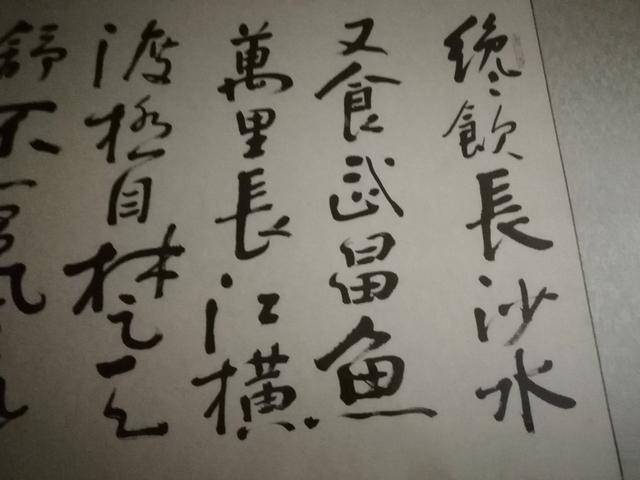 纔飲長沙水
又食武昌魚
萬里長江橫
渡極目楚天
舒不